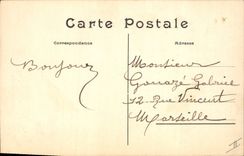 Carte Postale
Correspondance
Adresse
Bonjour
Monsieur
Gouazé Gabriel
12 Rue Vincent
Marseille